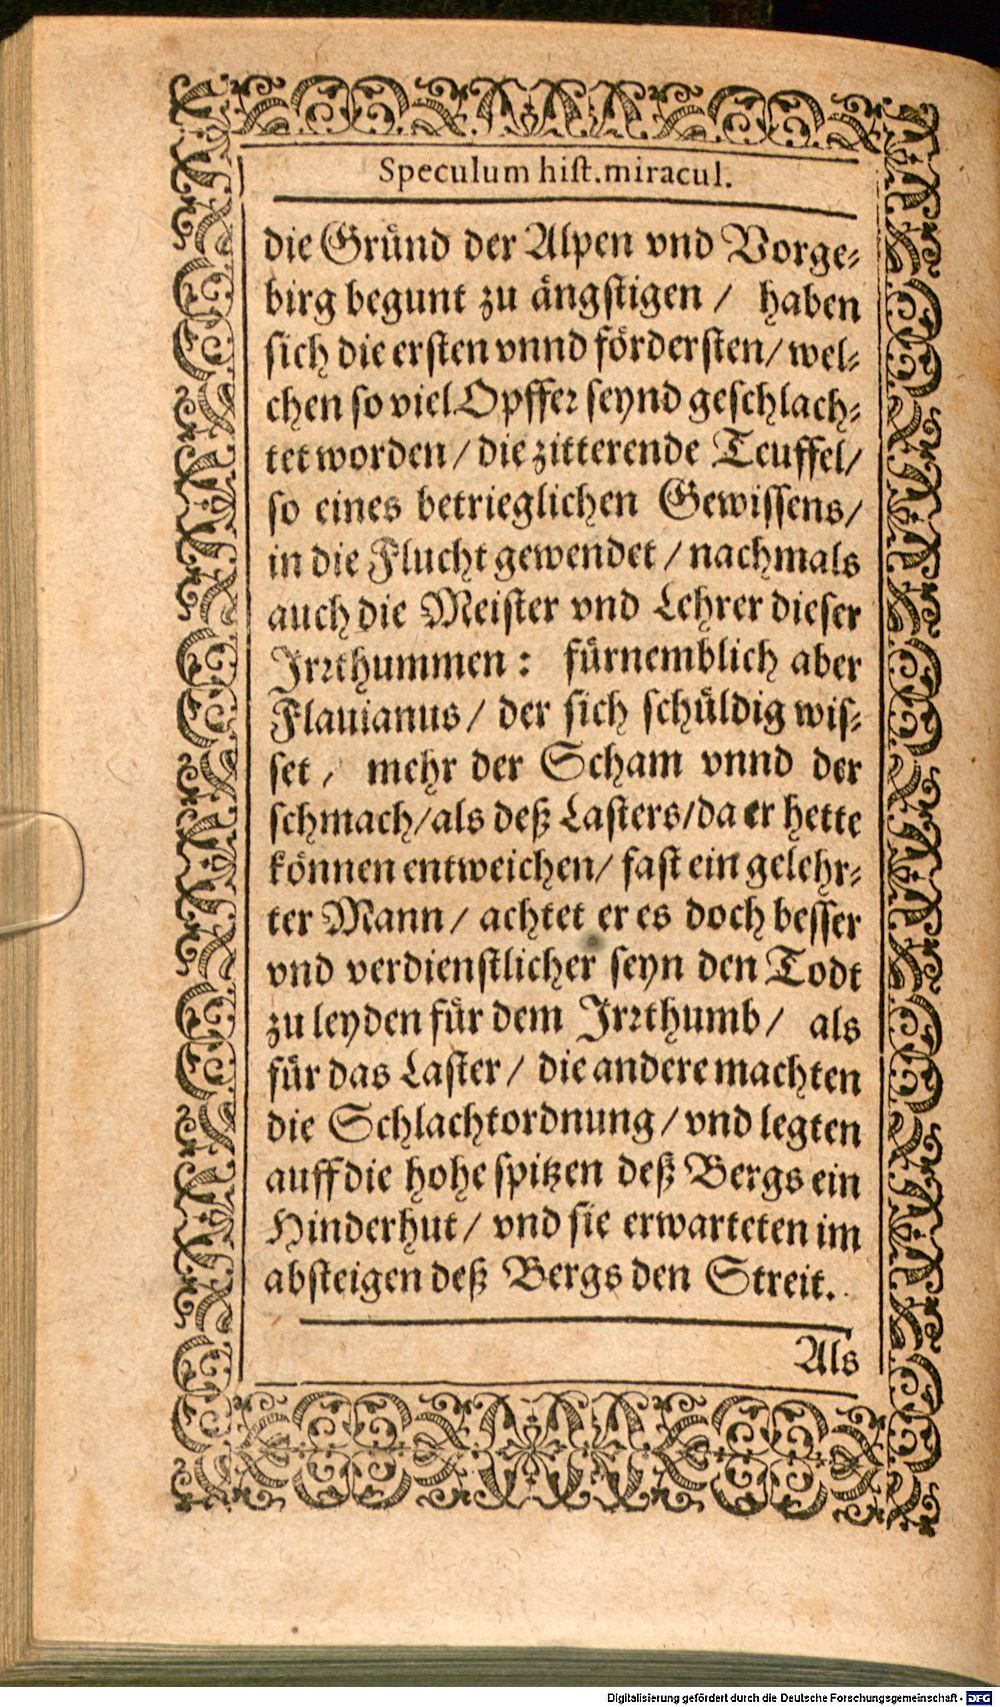 Speculum hist. miracul.
die Gründ der Alpen vnd Vorge-
birg begunt zu ängstigen / haben
sich die ersten vnnd fördersten / wel-
chen so viel Opffer seynd geschlach-
tet worden / die zitterende Teuffel /
so eines betrieglichen Gewissens /
in die Flucht gewendet / nachmals
auch die Meister vnd Lehrer dieser
Irrthummen : fürnemblich aber
Flauianus / der sich schüldig wis-
set / mehr der Scham vnnd der
schmach / als deß Lasters / da er hette
können entweichen / fast ein gelehr-
ter Mann / achtet er es doch besser
vnd verdienstlicher seyn den Todt
zu leyden für dem Irrthumb / als
für das Laster / die andere machten
die Schlachtordnung / vnd legten
auff die hohe spitzen deß Bergs ein
Hinderhut / vnd sie erwarteten im
absteigen deß Bergs den Streit.
Als
Digitalisierung gefördert durch die Deutsche Forschungsgemeinschaft - DFG